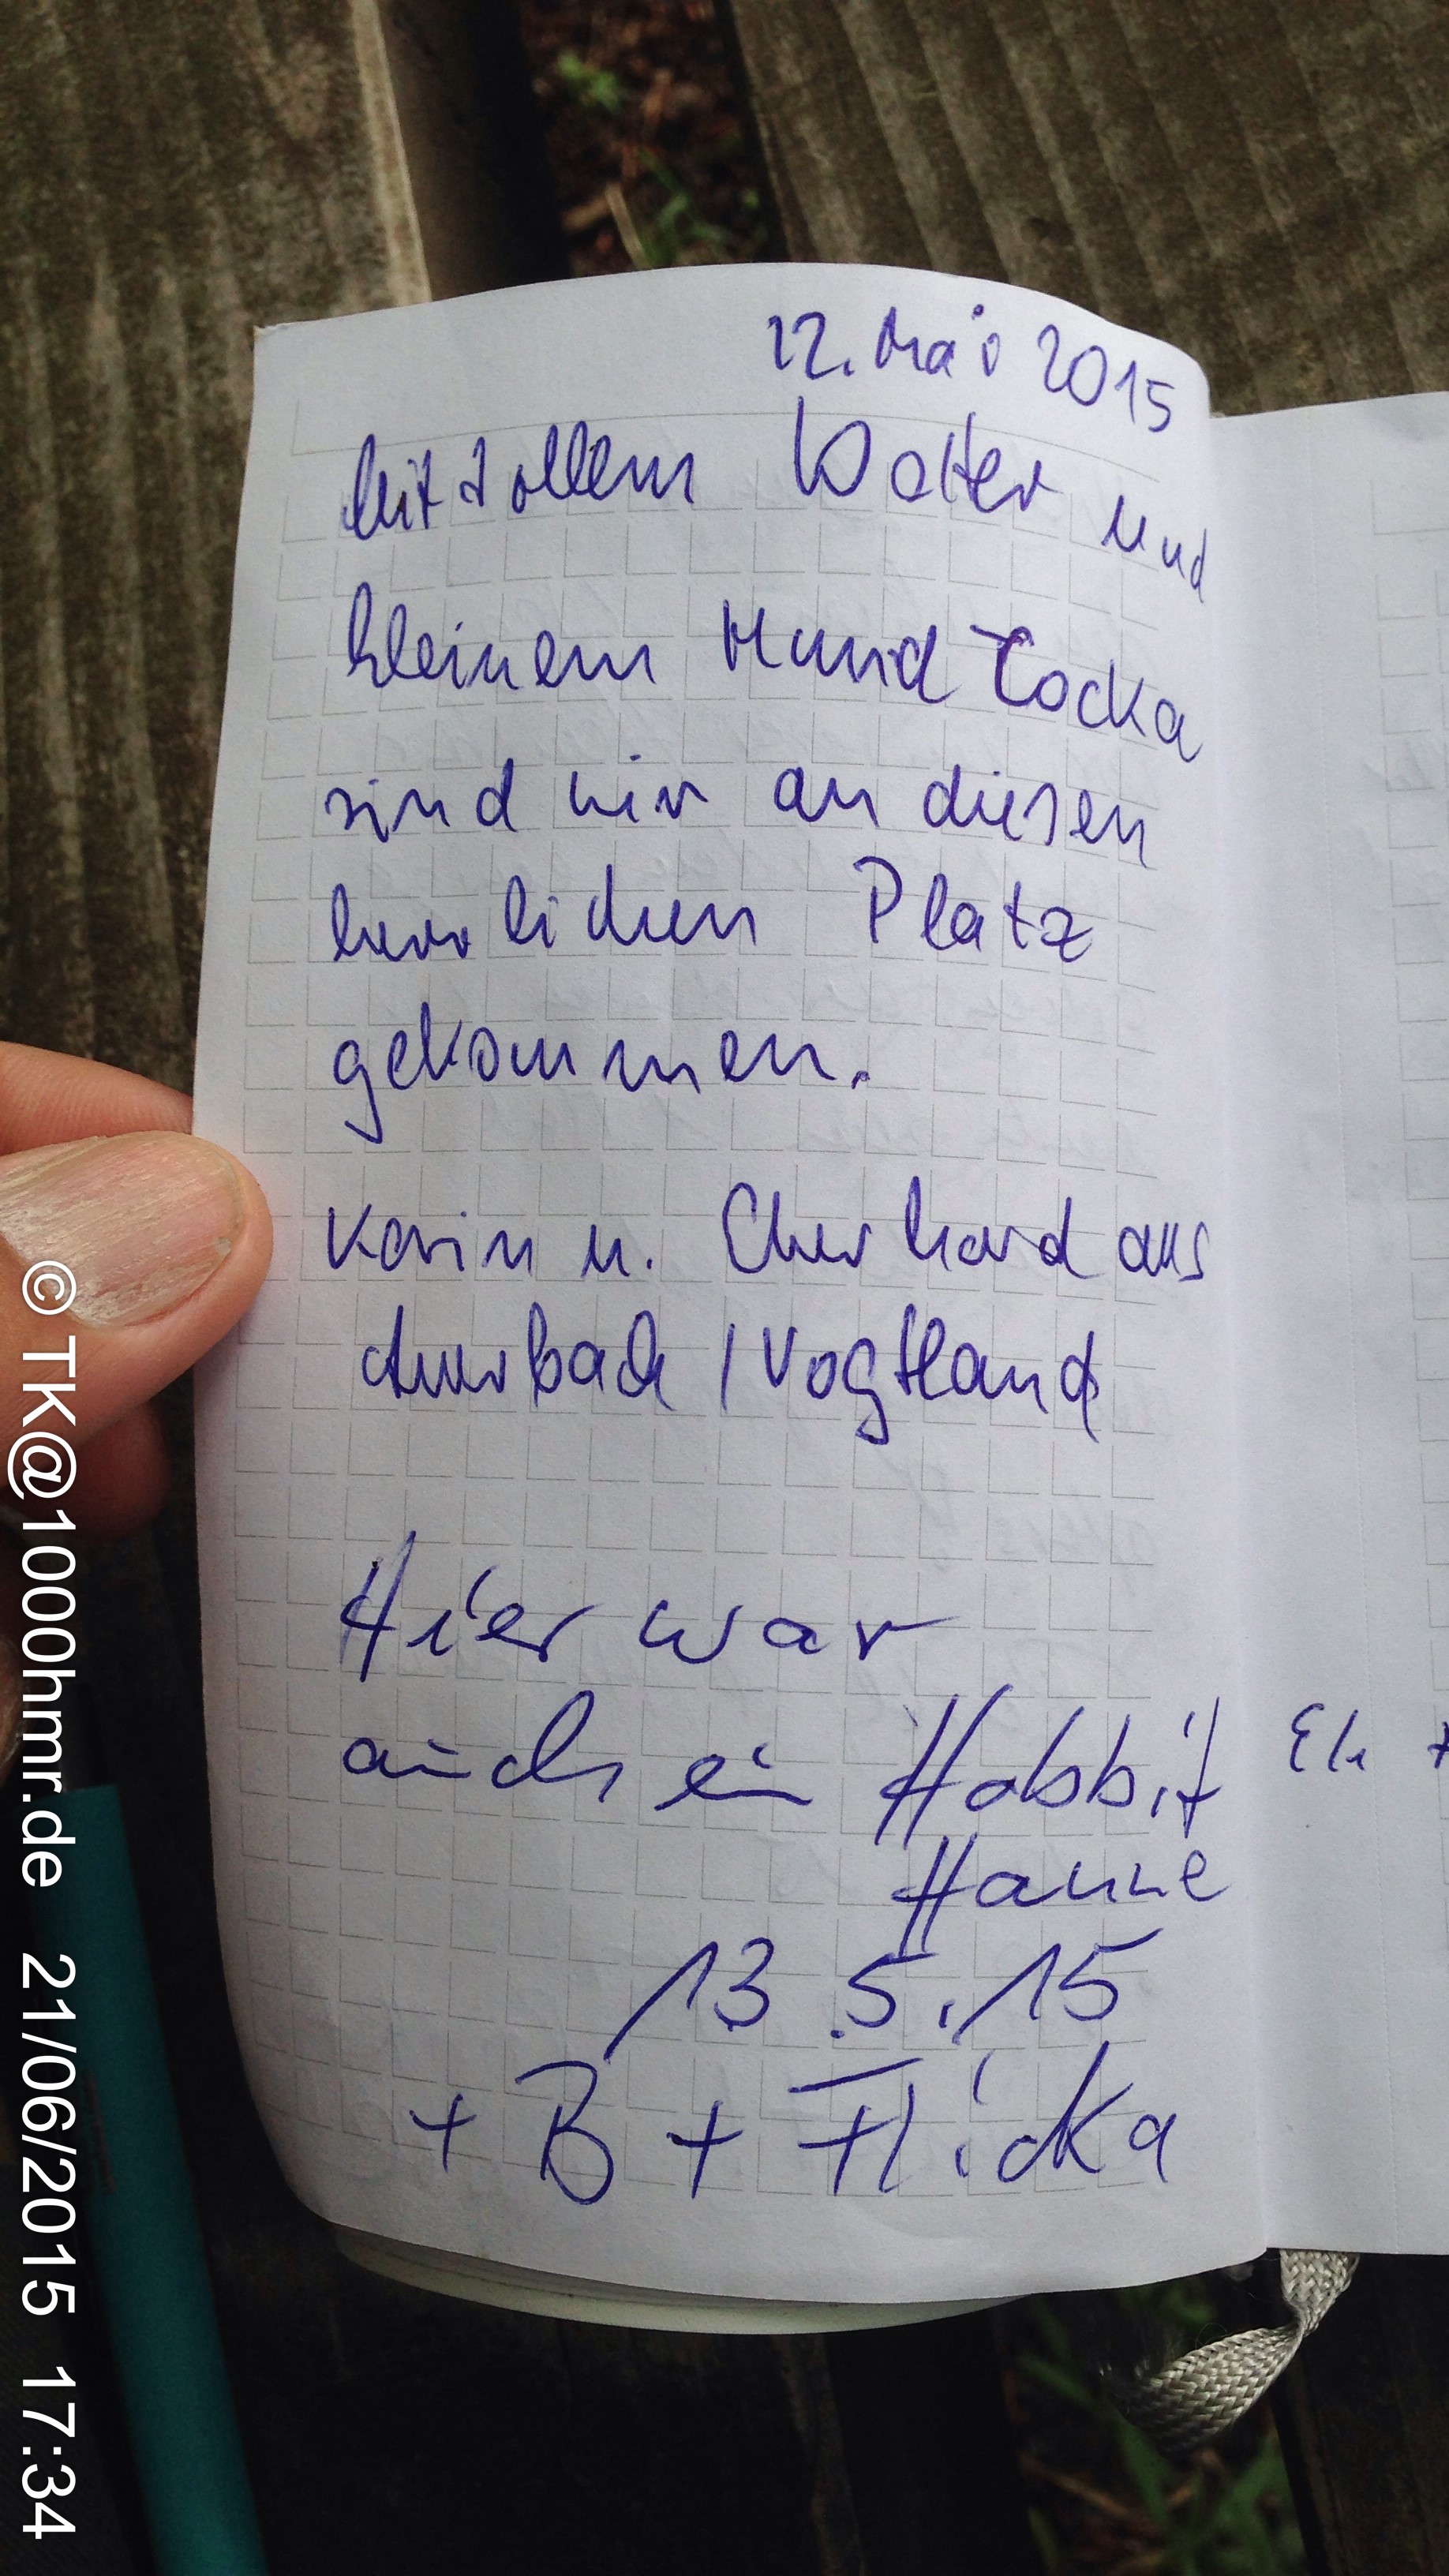 12. Mai 2015
Mit tollem Wetter und
kleinem Hund Cocka
sind wir an diesen
herrlichen Platz
gekommen.
Karin u. Eberhard aus
Auerbach / Vogtland
Hier war
auch ein Hobbit
Hanne
13.5.15
+ B + Flicka
© TK@1000hmr.de 21/06/2015 17:34